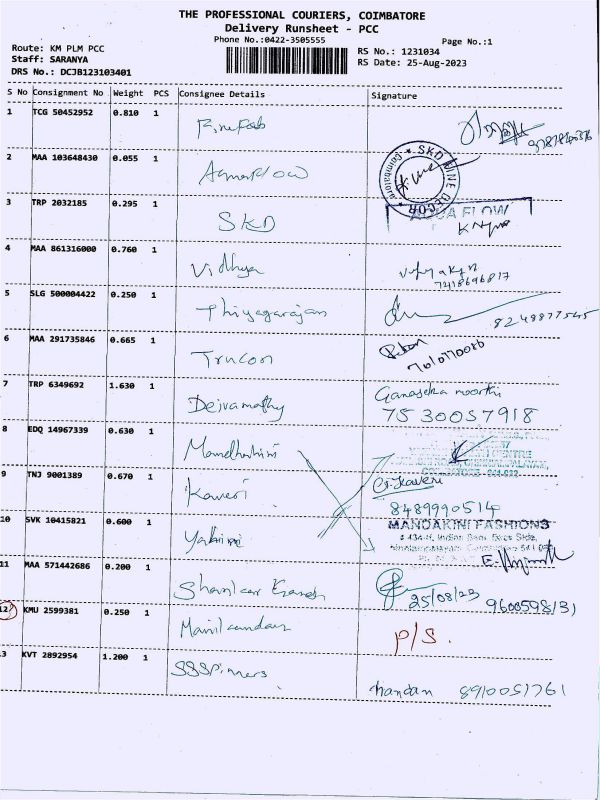 THE PROFESSIONAL COURIERS, COIMBATORE
Delivery Runsheet - PCC
Phone No.:0422-3505555
Page No.:1
Route: KM PLM PCC
Staff: SARANYA
DRS No.: DCJB123103401
RS No.: 1231034
RS Date: 25-Aug-2023
S No Consignment No Weight PCS Consignee Details Signature
1 TCG 50452952 0.810 1
2 MAA 103648430 0.055 1
SKD
Coimbatore
3 TRP 2032185 0.295 1 SKD AQUA FLOW
4 MAA 861316000 0.760 1 Vidhya
7418696817
5 SLG 500004422 0.250 1 Thiyagarajan 8248877545
6 MAA 291735846 0.665 1 Trucon
7 TRP 6349692 1.630 1 Deivamathy Ganaseka moorthi
7530057918
8 EDQ 14967339 0.630 1
9 TNJ 9001389 0.670 1 Kaveri G. Kaveri
8489990514
10 SVK 10415821 0.600 1 Yahini MANDAKINI FASHIONS
11 MAA 571442686 0.200 1 Shankar Ganesh
25/08/23 9600598131
12 KMU 2599381 0.250 1 Manikandan P/S.
3 KVT 2892954 1.200 1 SSSpinners
handan 8910051761